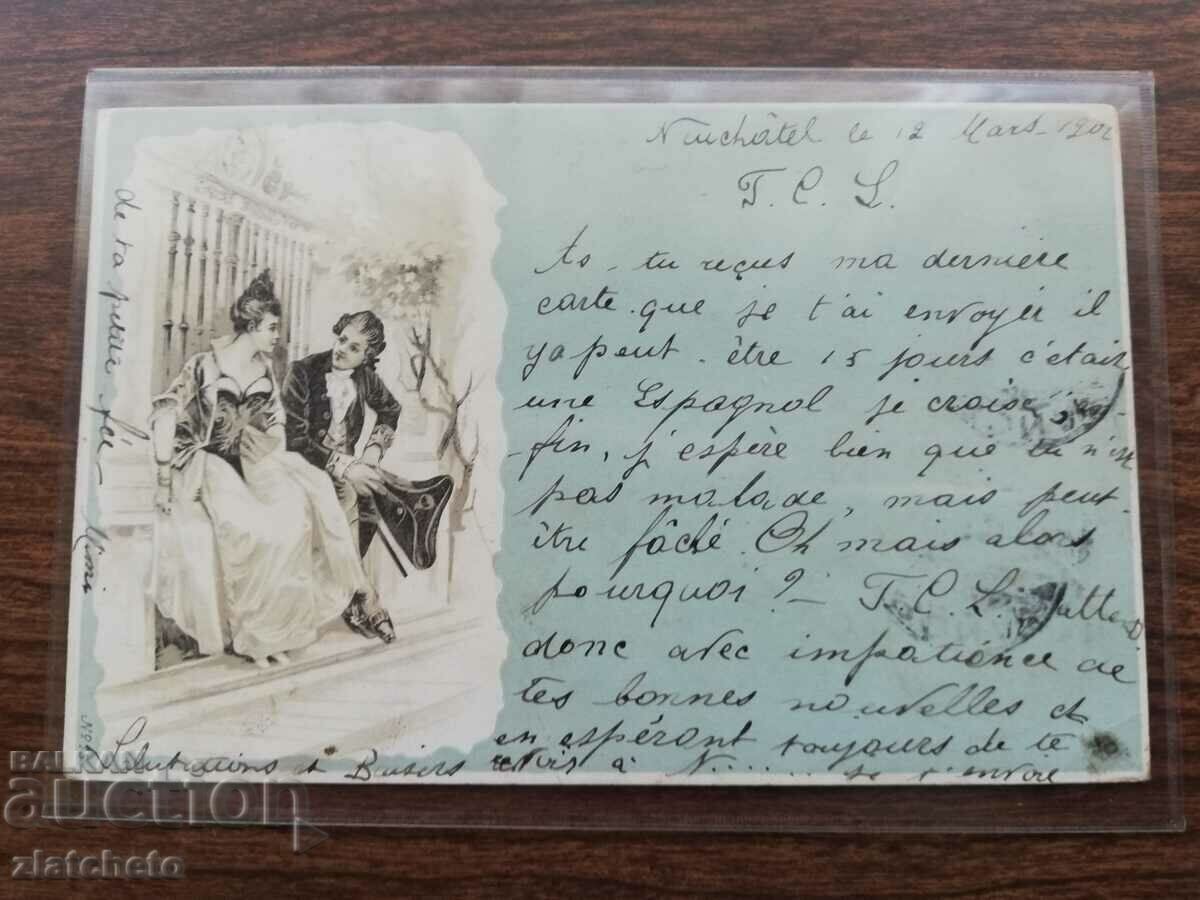 Neuchâtel le 12 Mars 1902
T. C. L.
As-tu reçus ma dernière
carte que je t'ai envoyer il
ya peut-être 15 jours c'était
une Espagnol je crois
fin, j'espère bien que tu n'est
pas malade, mais peut
être fâché. Oh mais alors
pourquoi ? — T. C. L.
donc avec impatience de
tes bonnes nouvelles et
en espérant toujours de te
revoir à N....... je t'envoie
Salutations et Baisers
de ta petite fée Mimi
No.
BALKAN
auction
zlatcheto